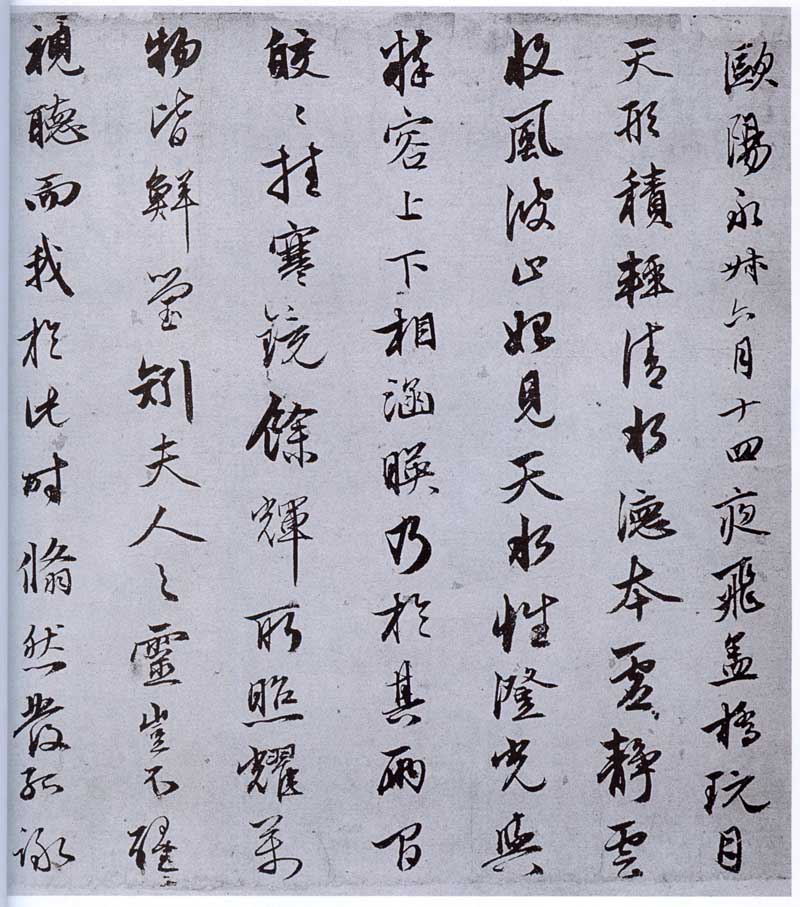 歐陽永叔六月十四夜飛蓋橋玩月
天形積輕清水德本虛靜雲
收風波止始見天水性澄光與
粹容上下相涵暎乃於其兩間
皎〻挂寒鏡餘輝所照耀萬
物皆鮮瑩矧夫人之靈豈不醒
視聽而我於此時翛然發孤詠